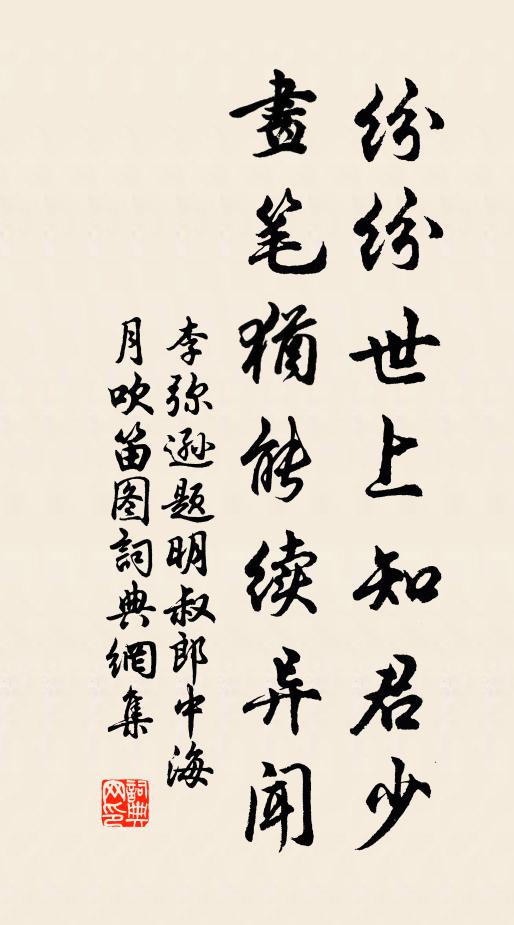 纷纷世上知君少
畫笔猶能续异闻
李弥逊题明叔郎中海
月吹笛图詞典網集
詞典
网印